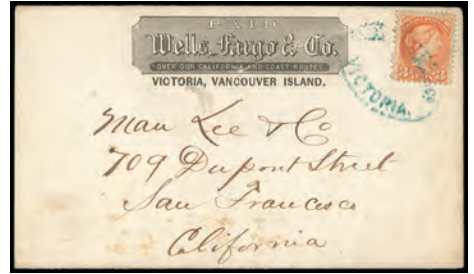 PAID
Wells, Fargo & Co.
OVER OUR CALIFORNIA AND COAST ROUTES
VICTORIA, VANCOUVER ISLAND.
VICTORIA.
3 3
Man Lee & Co
709 Dupont Street
San Francisco
California